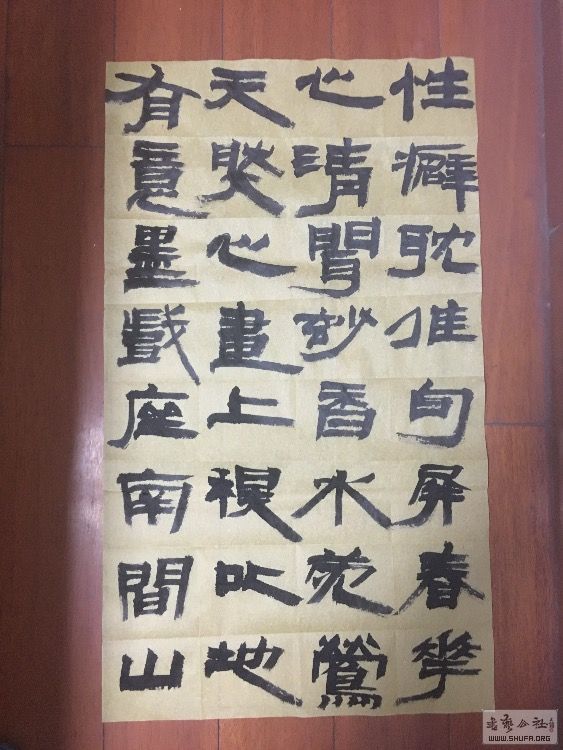 性癖耽佳句屏春華
心清聞妙香水苑鶯
天然心畫上視此地
有意墨戲座南間山
書藝公社
WWW.SHUFA.ORG